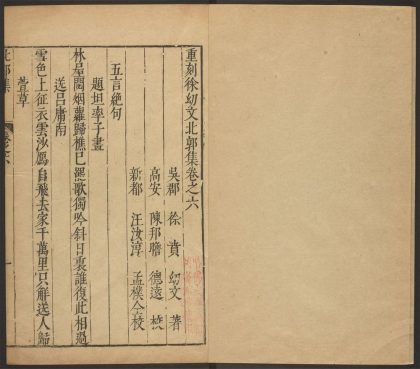 重刻徐幼文北郭集卷之六
吳郡　徐　賁　幼文　著
高安　陳邦瞻　德遠　校
新都　汪汝淳　孟樸仝校
五言絶句
題坦率子畫
林呈閟烟蘿歸樵已罷歌獨吟斜日裏誰復此相過
送呂庸南
雪色上征衣雲沙鴈自飛去家千萬里只解送人歸
萱草
北郭集
卷之六
一